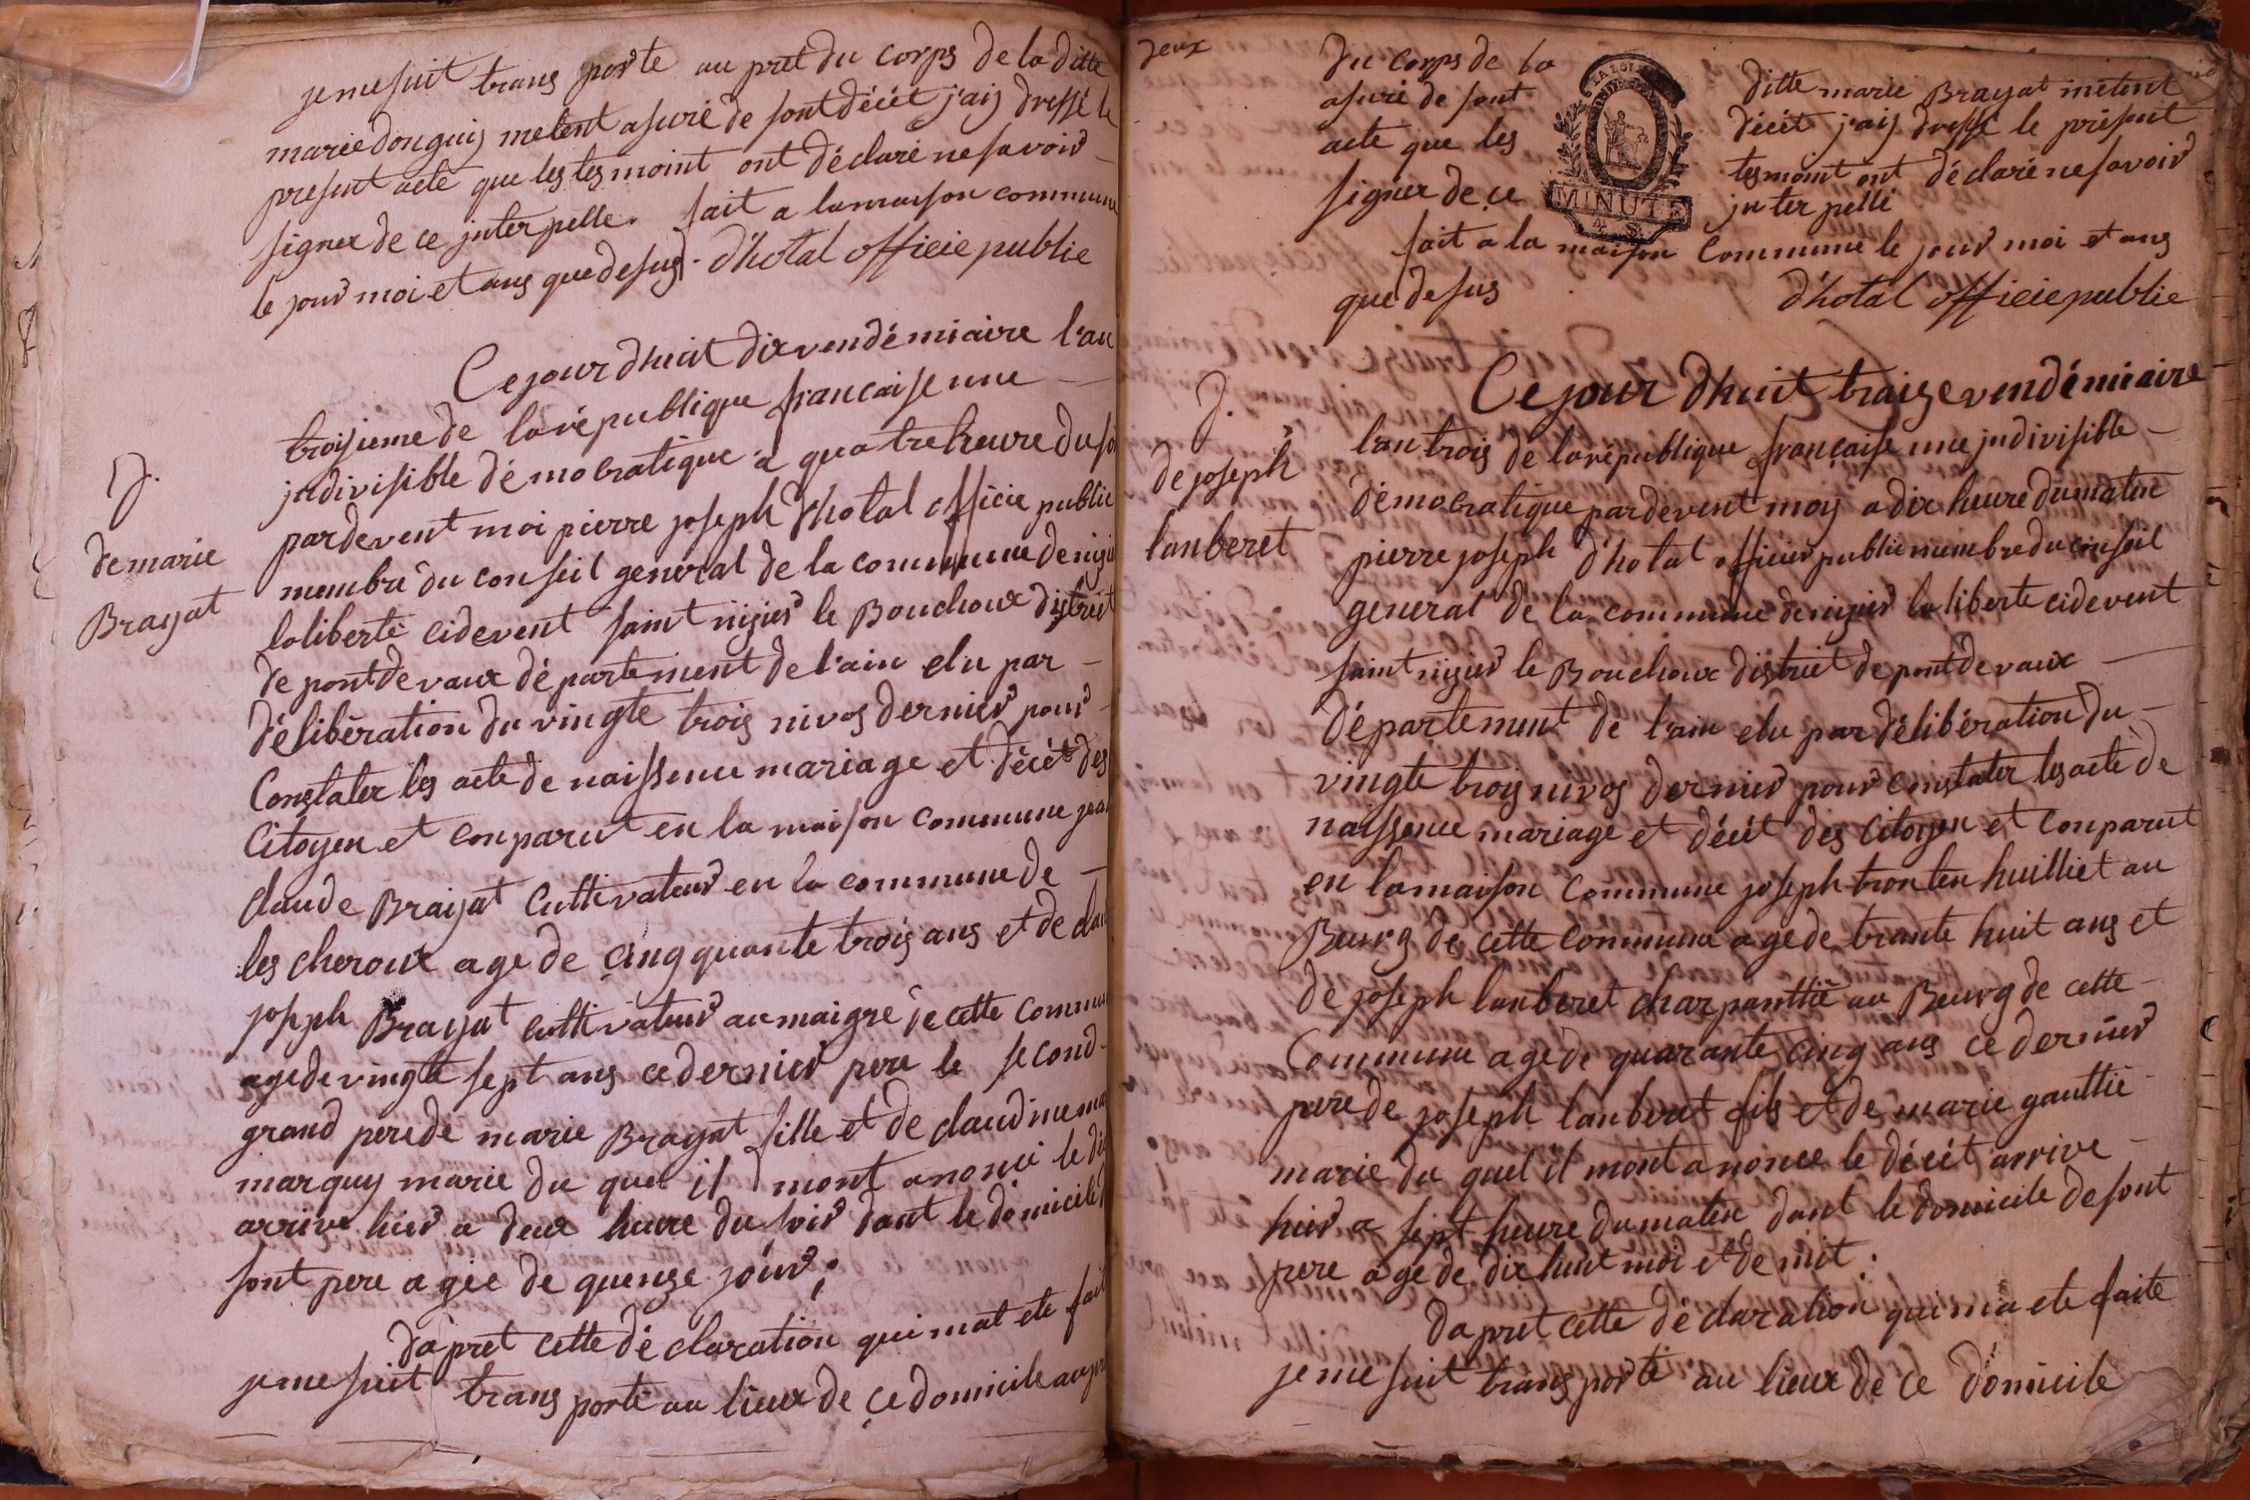 je me suit trans porte au pret du corps de la ditte
marie donguij metent asuré de sont décét j'aij dressé le
present acte que les tesmoint ont déclaré ne savoir
signer de ce juterpelle. fait a la maison commune
le jour moi et ans que desus. d'hotal officié public
Ce jour dhuit dix vendémiaire l'an
troisieme de la république francaise une
judivisible démocratique a quatre heure du so
D.
de marie
Brayat
pardevent moi pierre joseph d'hotal officié public
membre du conseil general de la commune de niziè
la liberté cidevent saint nizier le Bouchoux district
de pontdevaux département de l'ain elu par
délibération du vingte trois nivos dernier pour
Constater les acte de naissence mariage et décét des
Citoyen et conparut en la maison commune jean
claude Braijat Cultivateur en la commune de
les cheroux age de cinqquante trois ans et de clau
joseph Brayat cultivateur au maigre de cette commun
age de vingte sept ans ce dernier pere le second
grand pere de marie Brayat fille et de claudine ma
marguy marie du quel il mont anoncé le dé
arrive hier a deux heure du soir dont le domicile d
sont pere agée de quenze jour ;
da pret cette dé claration qui mat ete fait
je me suit trans porté au lieux de ce domicile au pr
deux
du corps de la ditte marie Brayat metent
asuré de sont décét j'aij dressé le présent
acte que les tesmoint ont déclaré ne savoir
signer de ce juterpellé
LA LOI
MINUTE
4 S.
fait a la maison Commune le jour moi et ans
que desus d'hotal officié public
Ce jour dhuit traize vendémiaire
D.
de joseph
lanberet
l'an trois de la république française une judivisible
démocratique pardevent moy a dix heure du maten
pierre joseph d'hotal officier public membre du conseil
general de la commune de nizier la liberte cidevent
saint nizier le Bouchoux district de pontdevaux
département de l'ain elu par délibération du
vingte trois nivos dernier pour constater les acte de
naissence mariage et décét des Citoyen et conparut
en la maison Commune joseph tronten huilliet au
Beurg de cette commune age de trante huit ans et
de joseph lanberet charpanttié au Beurg de cette
Commune age de quarante cinq ans ce dernier
pere de joseph lanberet fils et de marie gauttié
marie du quel il mont anonce le décét arrive
hier a sept heure du maten dont le domicile de sont
pere age de dix huit moi et de mit :
da pret cette déclaration qui ma ete faite
je me suit transporté au lieux de ce domicile